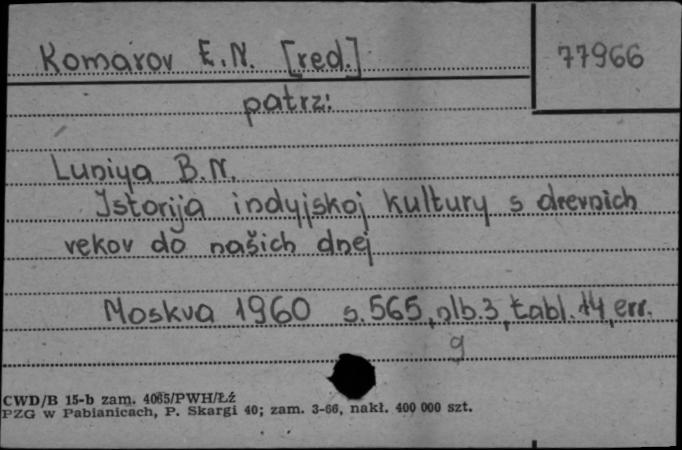 Komarov E.N. [red.]
77966
patrz:
Luniya B.N.
Istorija indyjskoj kultury s drevnich
vekov do našich dnej
Moskva 1960 s. 565, nlb. 3, tabl. 14, err.
9
CWD/B 15-b zam. 4065/PWH/Łź
PZG w Pabianicach, P. Skargi 40; zam. 3-66, nakł. 400 000 szt.